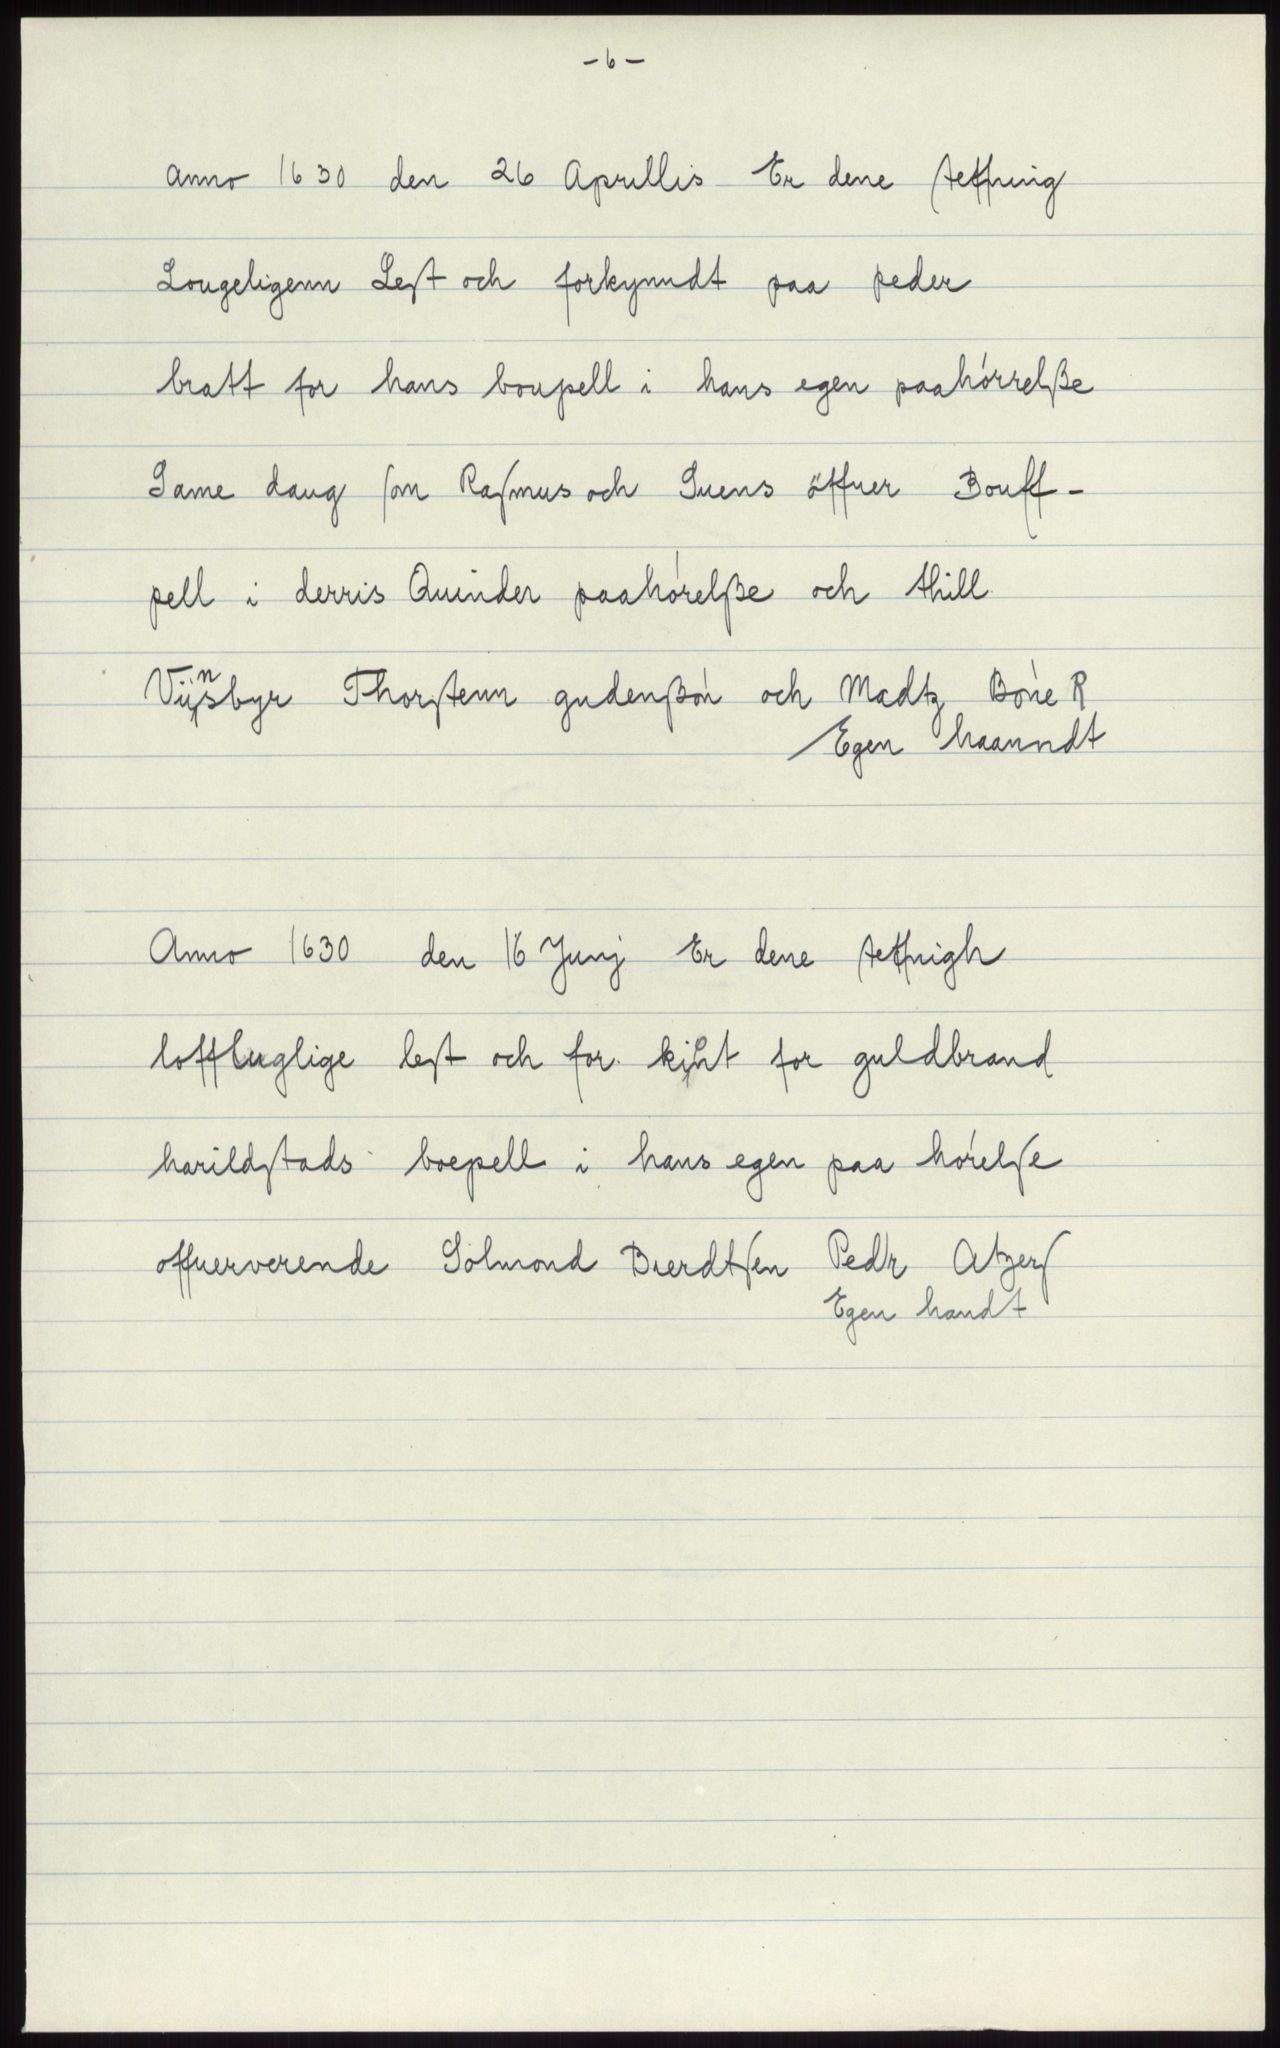 -6-
anno 1630 den 26 Aprillis Er dene steffning
Lougeligenn Lest och forkynndt paa peder
bratt for hans boupell i hans egen paahórrelße
Same daug som Rasmus och Suens öffuer Bouff-
pell i derris Quinder paahórelße och thill
Vijnsbyr Thorstenn gudenßón och Madtz Bóne R
Egen haanndt
Anno 1630 den 16 Junj Er dene steffnigh
loffluglige lest och for kint for guldbrand
harildstads boepell i hans egen paa hórelse
offuerverende Sólmond Buerdtsen Pedr Atzers
Egen handt